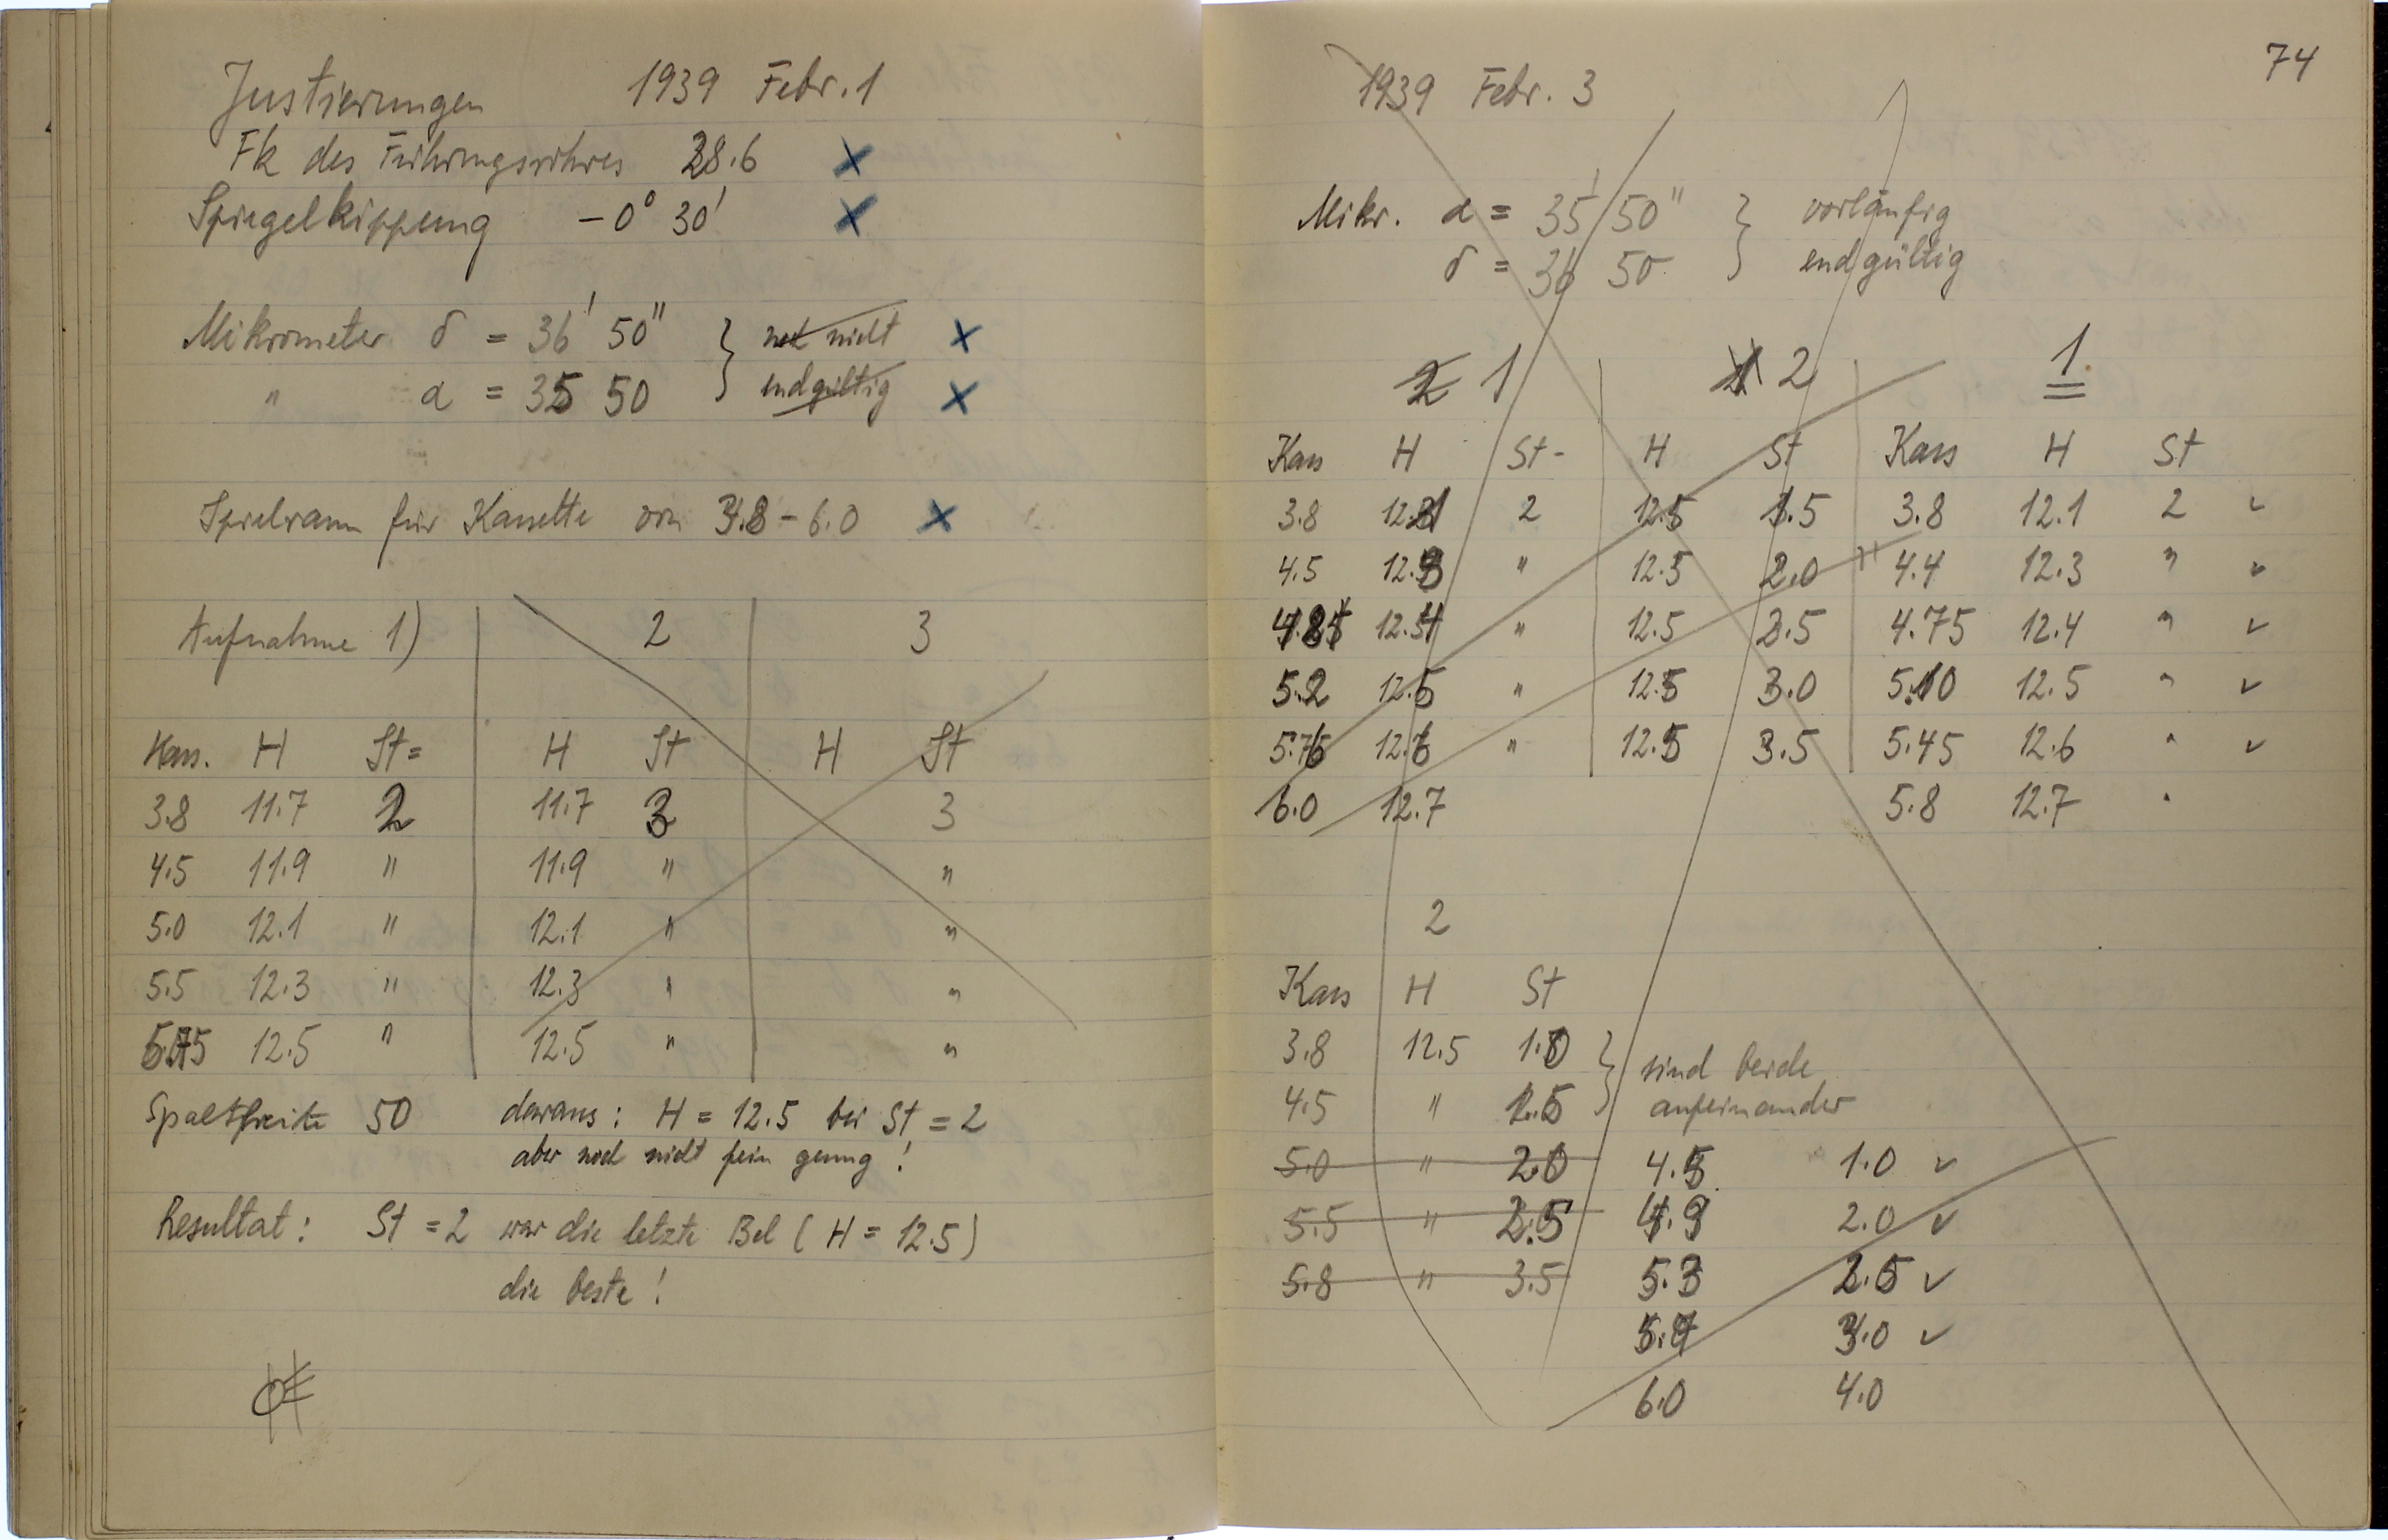 Justierungen 1939 Febr. 1
Fk des Führungsrohres 28.6 x
Spiegelkippung - 0° 30' x
Mikrometer δ = 36' 50" } noch nicht x
" α = 35 50 } endgültig x
Spielraum für Kassette von 3.8 - 6.0 x
Aufnahme 1) 2 3
Kass. H St = H St H St
3.8 11.7 2 11.7 3 3
4.5 11.9 " 11.9 " "
5.0 12.1 " 12.1 " "
5.5 12.3 " 12.3 " "
12.5 " 12.5 " "
Spaltbreite 50 daraus: H = 12.5 bei St = 2
aber noch nicht fein genug!
Resultat: St = 2 war die letzte Bel (H = 12.5)
die beste!
74
1939 Febr. 3
Mikr. α = 35' 50" } vorläufig
δ = 36 50 } endgültig
2 1 1 2 1.
Kass H St- H St Kass H St
3.8 12.1 2 12.5 1.5 3.8 12.1 2 ✓
4.5 12.3 " 12.5 2.0 4.4 12.3 " ✓
12.4 " 12.5 2.5 4.75 12.4 " ✓
5.2 12.5 " 12.5 3.0 5.10 12.5 " ✓
5.75 12.6 " 12.5 3.5 5.45 12.6 " ✓
6.0 12.7 5.8 12.7 "
2
Kass H St
3.8 12.5 1.0 } sind beide
4.5 " 1.5 } aufeinander
5.0 " 2.0 4.5 1.0 ✓
5.5 " 2.5 4.9 2.0 ✓
5.8 " 3.5 5.3 2.5 ✓
5.7 3.0 ✓
6.0 4.0